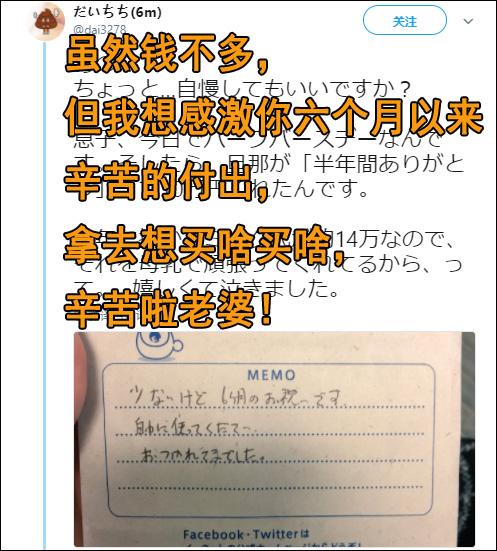 だいちち(6m)
@dai3278
关注
虽然钱不多，
ちょっと...自慢してもいいですか？
但我想感激你六个月以来
息子、今日でハーフバースデーなんで
す。そしたら、旦那が「半年間ありがと
辛苦的付出，
れたんです。
拿去想买啥买啥，
約14万なので、
それを母乳で頑張ってくれてるから、っ
て。
嬉しくて泣きました。
辛苦啦老婆！
MEMO
少ないけど 6か月のお祝いです
自由に使ってください。
おつかれさまでした。
Facebook・Twitterは